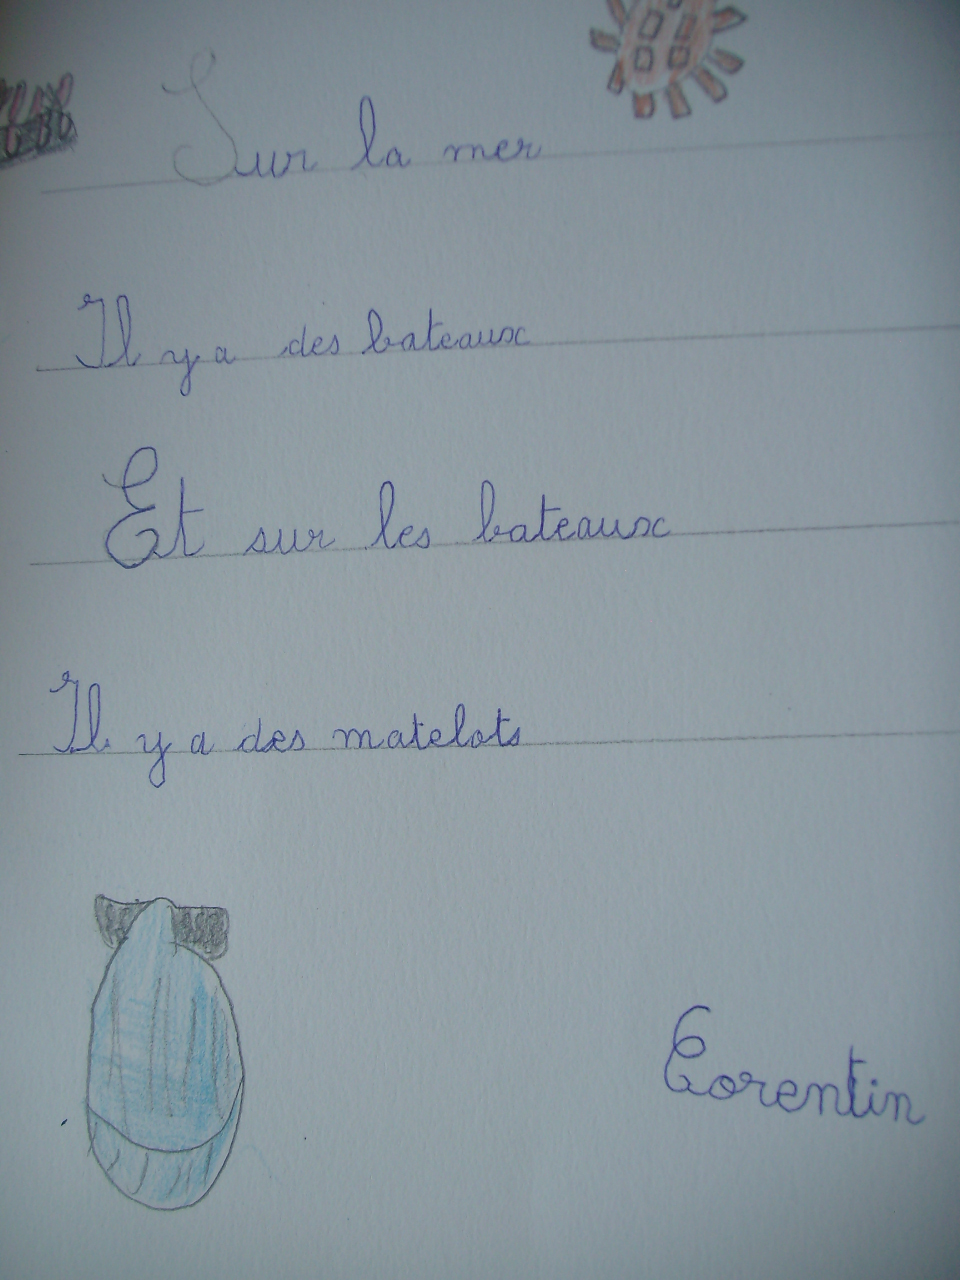 Sur la mer
Il y a des bateaux
Et sur les bateaux
Il y a des matelots
Corentin